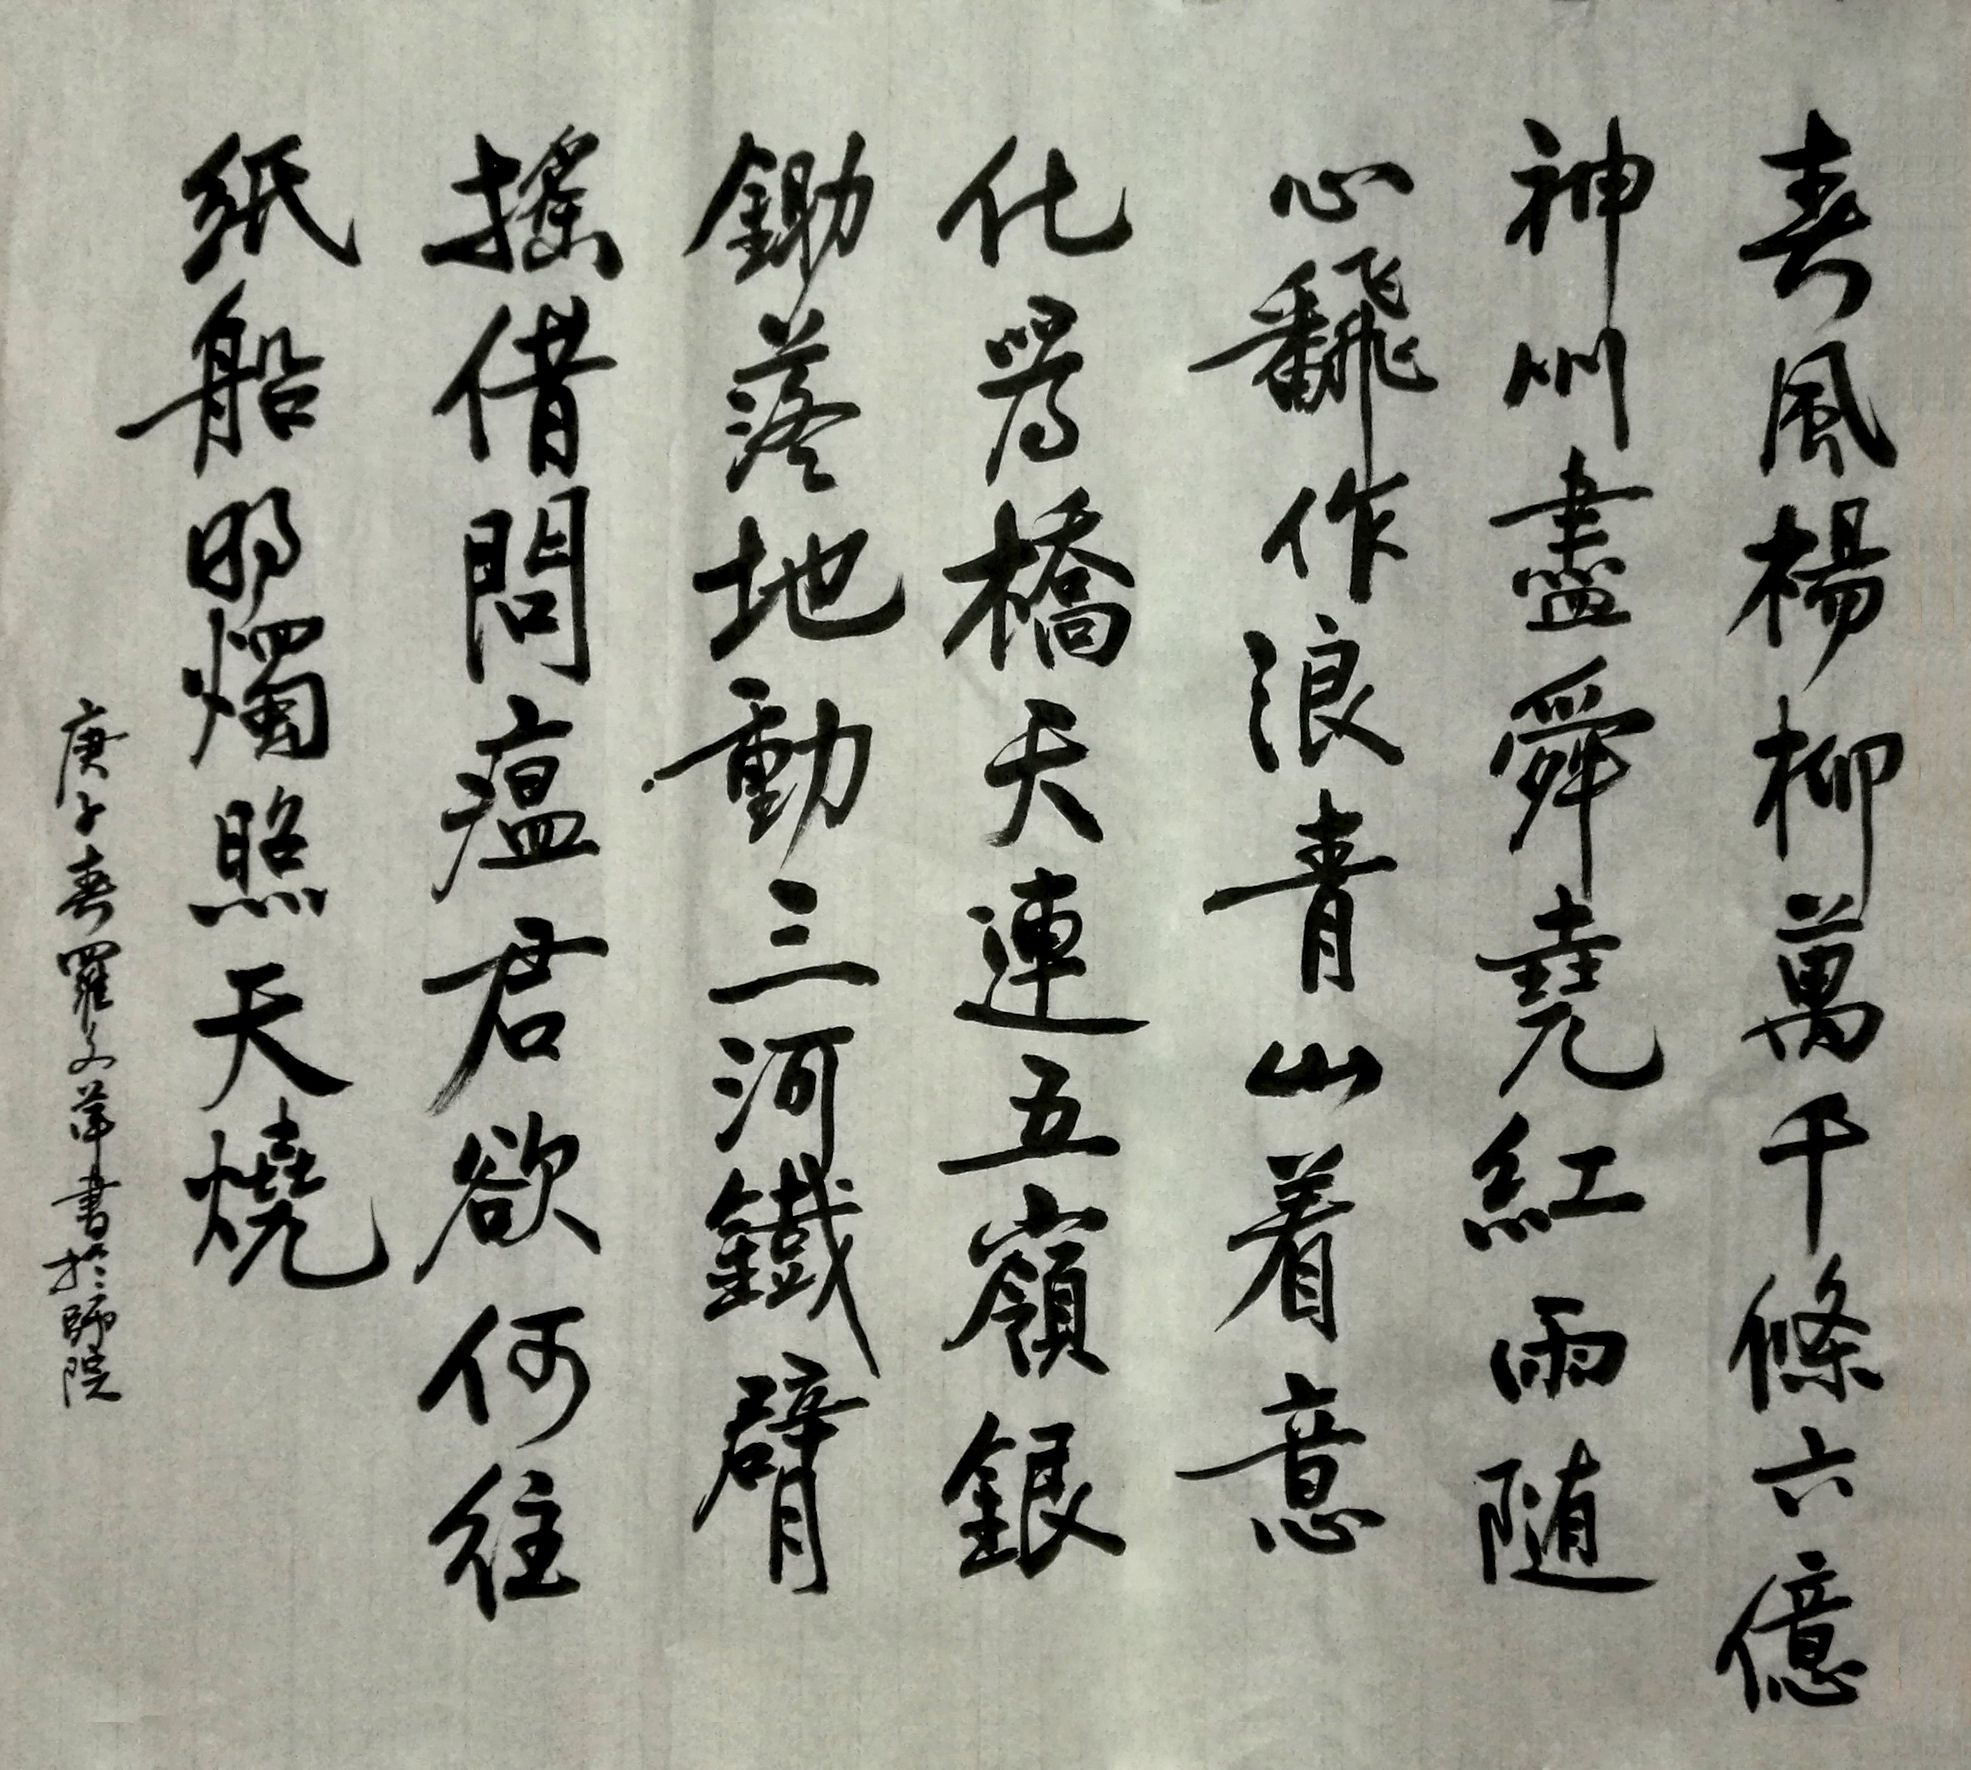 春風楊柳萬千條六億
神州盡舜堯紅雨随
心飜作浪青山着意
化爲橋天連五嶺銀
鋤落地動三河鐵臂
摇借問瘟君欲何往
紙船明燭照天燒
庚子春羅文萍書於師院